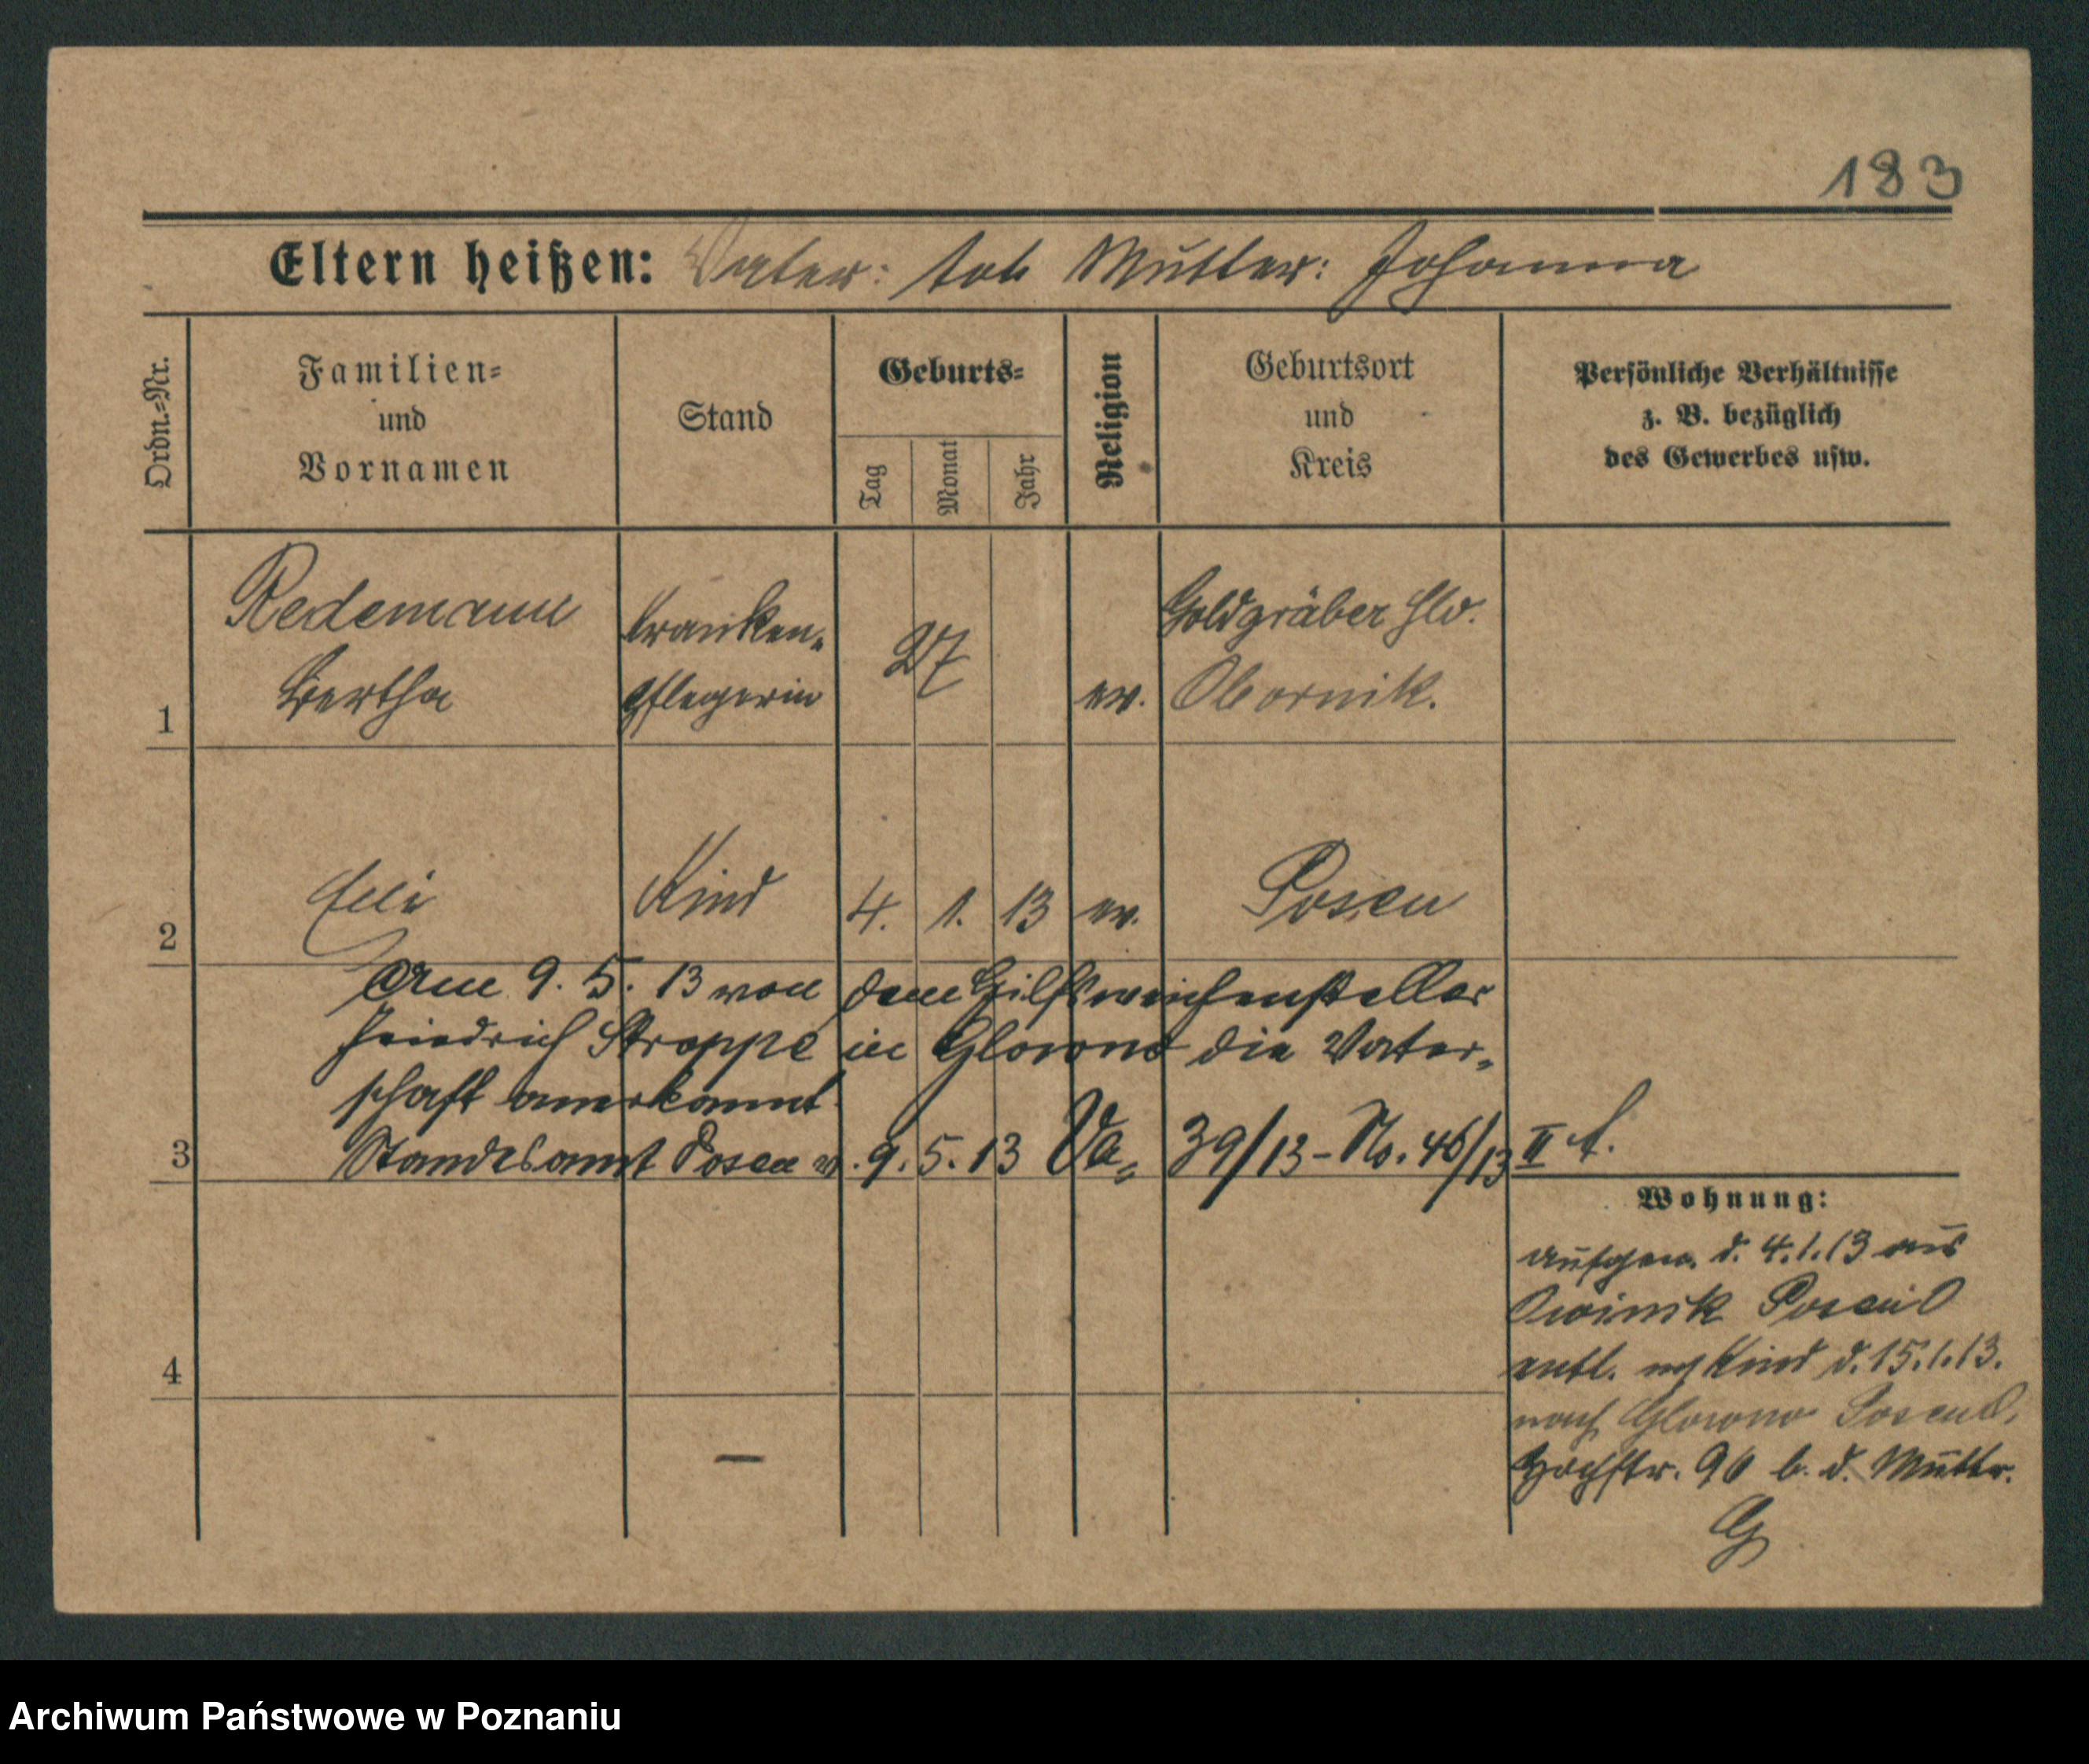 183
Eltern heißen: Vater: tot Mutter: Johanna
Ordn.=Nr.
Familien=
und
Vornamen
Stand
Geburts=
Tag
Monat
Jahr
Religion
Geburtsort
und
Kreis
Persönliche Verhältnisse
z. B. bezüglich
des Gewerbes usw.
1
Redemann
Bertha
Kranken=
pflegerin
27
ev.
Goldgräber Hld.
Obornik.
2
Kind
4. 1. 13
ev.
Posen
Am 9. 5. 13 von dem Hilfsweichensteller
Friedrich Stroppe in Glowno die Vater=
schaft anerkannt
3
Standesamt Posen v. 9. 5. 13 Va= 39/13 - No. 46/13 II
Wohnung:
aufgen. d. 4.1.13 aus
entl. m Kind d. 15.1.13.
nach Glowno
4
b. d. Mutter.
Archiwum Państwowe w Poznaniu